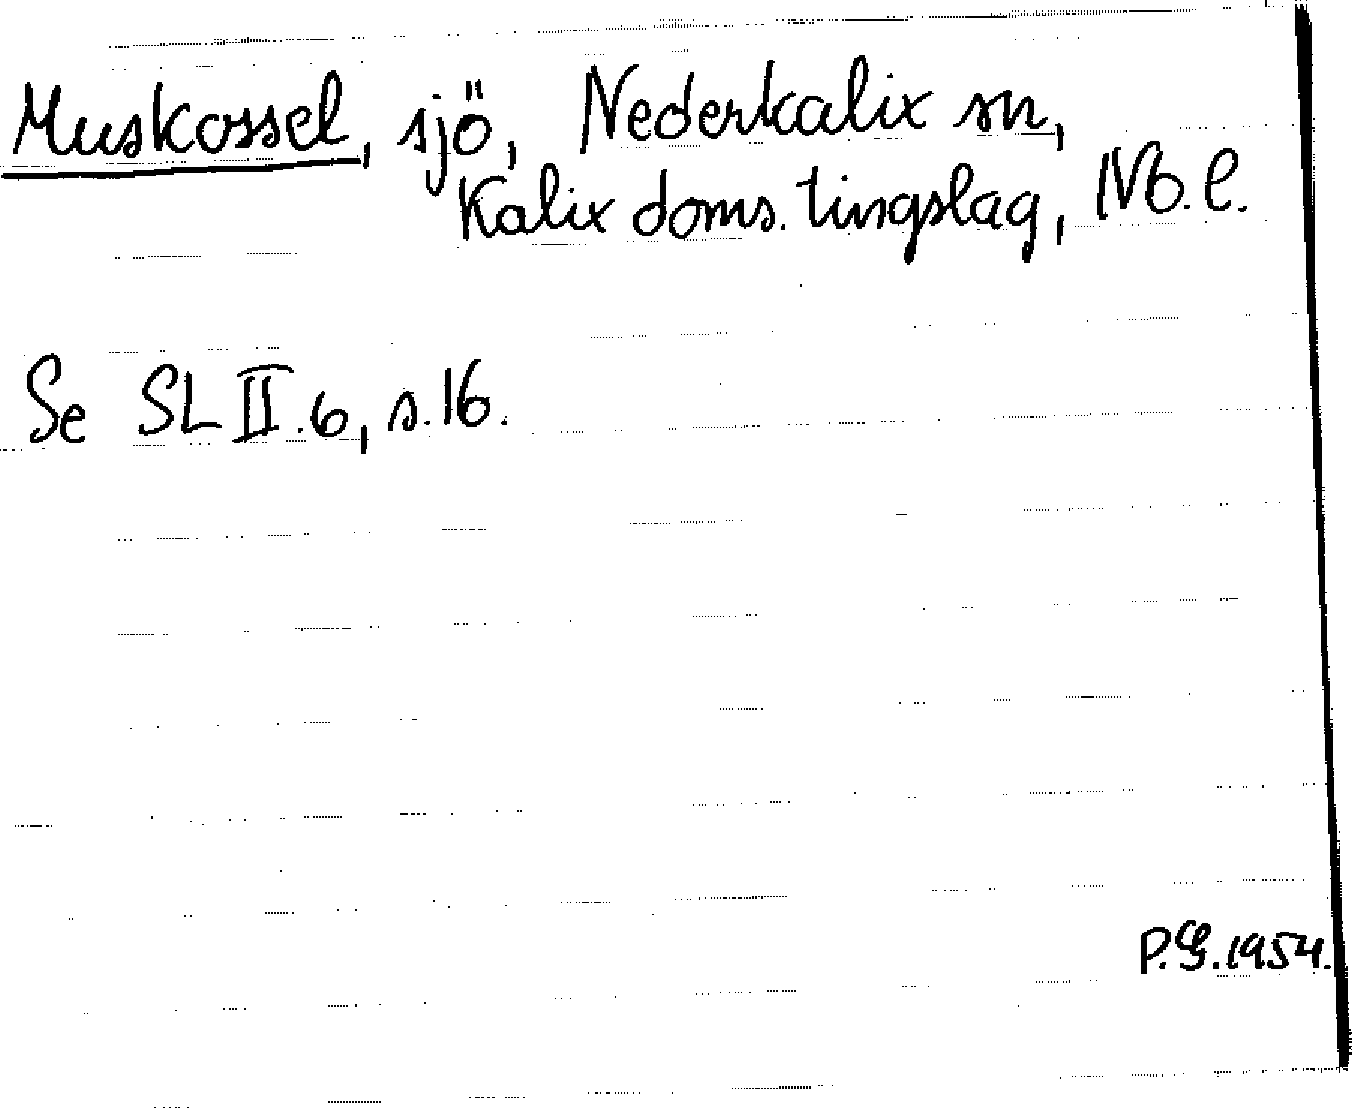 Muskossel, sjö, Nederkalix sn,
Kalix doms. tingslag, Nb. l.
Se SL II.6, s.16.
P.G.1954.